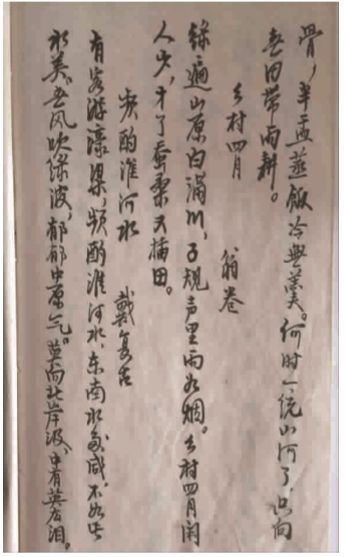 骨,半盂蒸飯冷無羹。何时一统山河了,只向
春田带雨耕。
乡村四月 翁卷
绿遍山原白满川,子规声里雨如烟。乡村四月闲
人少,才了蚕桑又插田。
频酌淮河水 戴复古
有客游濠梁,频酌淮河水,东南水多咸,不如此
水美。春风吹绿波,郁郁中原气。莫向北岸汲,中有英雄泪。